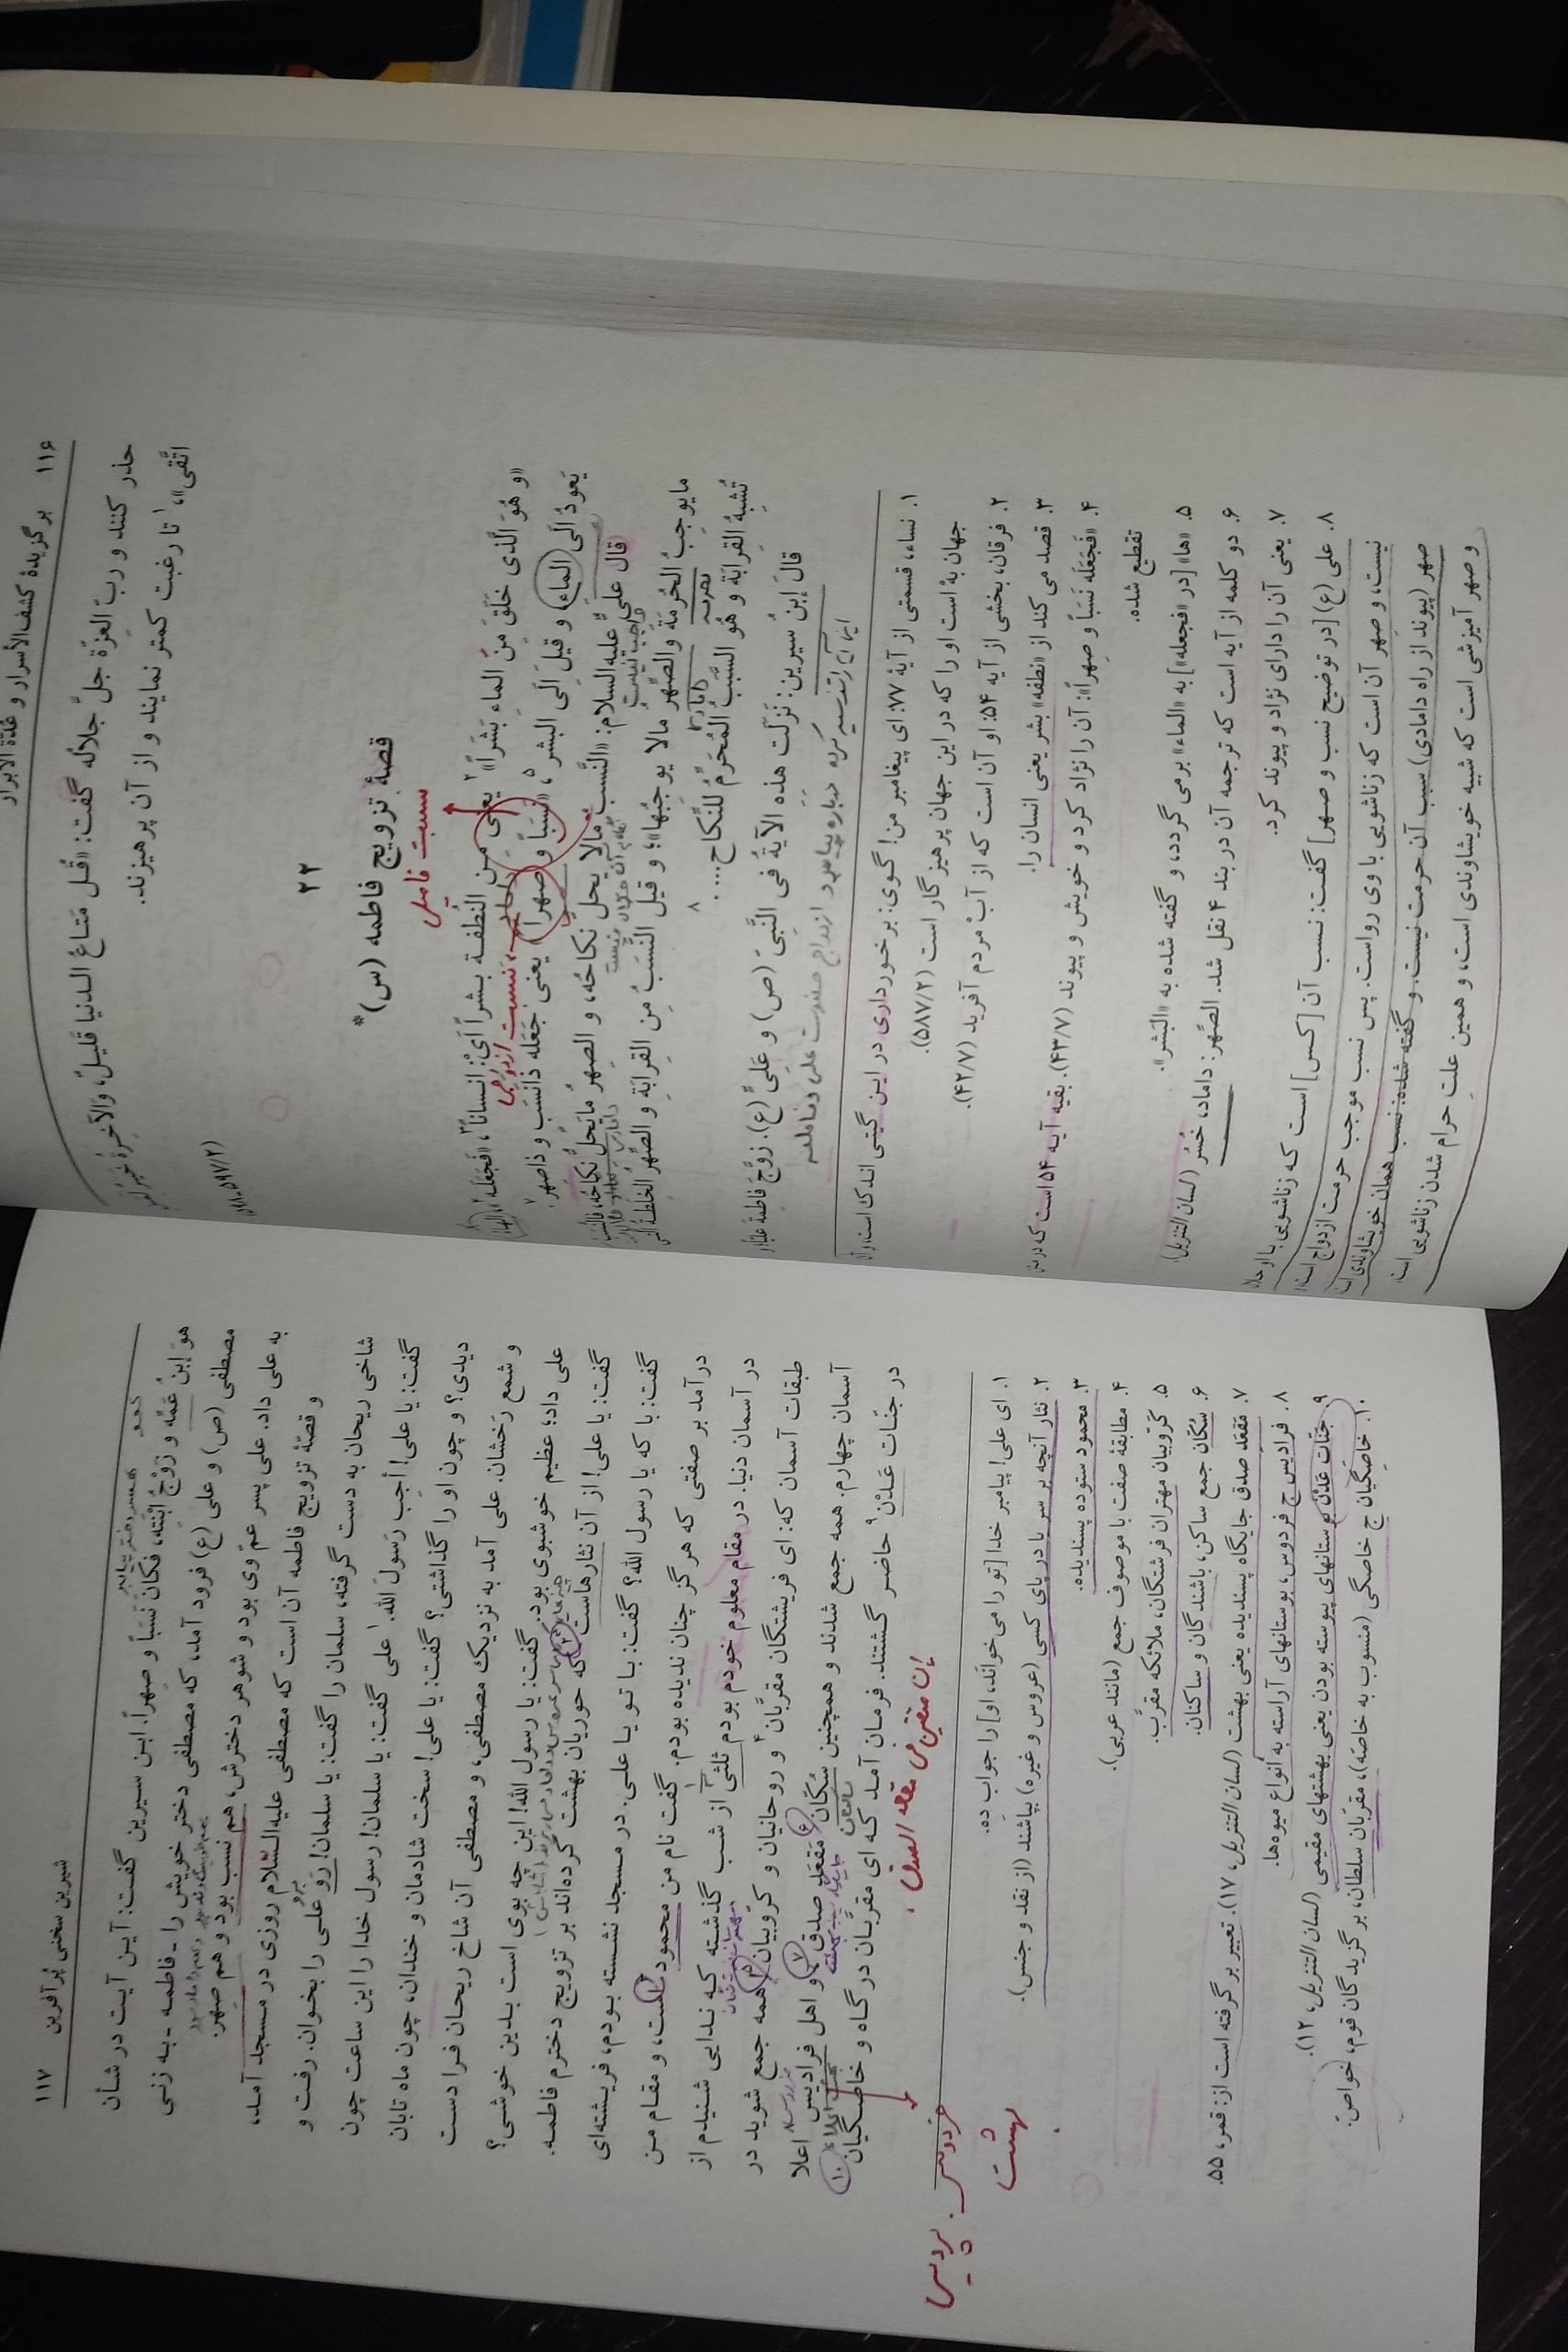 ۱۱۶ برگزیدهٔ کشف‌الأسرار و عُدّة الأبرار
حذر کنند و ربّ العِزّة جلّ جلالُه گفت: «قُل مَتاعُ الدنیا قَلیلٌ، وَالآخِرةُ خَیرٌ لِمَنِ
اتَّقی»،۱ تا رغبت کمتر نمایند و از آن پرهیزند.
۵۹۷/۲)
۲۲
قصهٔ تزویج فاطمه (س)*
سببت فامیلی
«و هُوَ الَّذی خَلَقَ مِنَ الماءِ بَشَراً»۲ یعنی مِن النُطفة بشراً اَیْ: انساناً۳، «فَجَعَلَهُ»۴ الهاء
نسبت ازدواجی
یَعودُ اِلَی (الماء) و قیلَ اِلَی البشر۵، «نَسَباً و صِهراً»۶ یعنی جَعَلَه ذانَسَب و ذاصِهر.۷
قال علیٌّ علیه‌السلام: «النَّسَبُ مالا یحلّ نکاحُه، و الصِهرُ مایَحلُّ نکاحُه، فالنَّسَبُ
مایوجِبُ الحُرمَةِ والصِّهر مالا یوجِبُها»؛ و قیل النَّسَبُ مِن القِرابَةِ و الصِّهرُ الخِلطَةُ الّتی
تُشبِهُ القِرابَةَ و هُوَ السَّبَبُ المُحَرَّمُ لِلنِّکاح....۸
قالَ اِبنُ سیرین: نَزَلَت هذه الآیةُ فی النَّبیّ (ص) و عَلِیٍّ (ع). زَوَّجَ فاطمةَ علیّاً و
ابن آیه را تفسیر کرده درباره پیامبر و ازدواج حضرت علی و فاطمه
۱. نساء، قسمتی از آیهٔ ۷۷: ای پیغامبر من! گوی: برخورداری در این گیتی اندک است، و آن
جهان بهْ است او را که در این جهان پرهیزگار است (۵۸۷/۲).
۲. فرقان، بخشی از آیه ۵۴: او آن است که از آبْ مردم آفرید (۴۲/۷).
۳. قصد می‌کند از «نطفه» بشر یعنی انسان را.
۴. «فَجَعَلَه نَسَباً و صِهراً»: آن را نژاد کرد و خویش و پیوند (۴۳/۷). بقیه آیه ۵۴ است که در متن
تقطیع شده.
۵. «ها» [در «فجعله»] به «الماء» برمی‌گردد، و گفته شده به «البَشر».
۶. دو کلمه از آیه است که ترجمه آن در بند ۴ نقل شد. الصِّهر: داماد، خُسُر (لسان التنزیل،
۷. یعنی آن را دارای نژاد و پیوند کرد.
۸. علی (ع) [در توضیح نسب و صهر] گفت: نسب آن [کس] است که زناشویی با او حلال
نیست، و صهر آن است که زناشویی با وی رواست. پس نسب موجب حرمت ازدواج است و
صهر (پیوند از راه دامادی) سبب آن حرمت نیست. و گفته شده: نسب همان خویشاوندی است
و صهر آمیزشی است که شبیه خویشاوندی است، و همین علتِ حرام شدن زناشویی است.
شیرین سخنی پُرآفرین ۱۱۷
همسر دختر پیامبر
هوَ اِبنُ عَمِّه و زَوْجُ ابْنَتِه، فَکانَ نَسَباً و صِهراً. ابن سیرین گفت: آین آیت در شأن
مصطفی (ص) و علی (ع) فرود آمد، که مصطفی دختر خویش را ـ فاطمه ـ به زنی
به علی داد. علی پسر عمّ وی بود و شوهر دخترش، هم نسب بود و هم صِهر.
و قصّهٔ تزویج فاطمه آن است که مصطفی علیه‌السّلام روزی در مسجد آمد،
شاخی ریحان به دست گرفته، سلمان را گفت: یا سلمان! رَو علی را بخوان. رفت و
گفت: یا علی! أَجِب رَسولَ الله.۱ علی گفت: یا سلمان! رسول خدا را این ساعت چون
دیدی؟ و چون او را گذاشتی؟ گفت: یا علی! سخت شادمان و خندان، چون ماه تابان
و شمع رَخشان. علی آمد به نزدیک مصطفی، و مصطفی آن شاخ ریحان فرا دست
علی داد؛ عظیم خوشبوی بود. گفت: یا رسول الله! این چه بوی است بدین خوشی؟
گفت: یا علی! از آن نثارهاست۲ که حوریان بهشت کرده‌اند بر تزویج دخترم فاطمه.
گفت: با که یا رسول الله؟ گفت: با تو یا علی. در مسجد نشسته بودم، فریشته‌ای
درآمد بر صفتی که هرگز چنان ندیده بودم. گفت نام من محمود۳ است، و مقام من
در آسمان دنیا. در مقام معلوم خودم بودم ثلثی از شب گذشته که ندایی شنیدم از
طبقات آسمان که: ای فریشتگان مقرّبان۴ و روحانیان و کرّوبیان۵ همه جمع شوید در
آسمان چهارم. همه جمع شدند و همچنین سُکّان۶ مَقعَدِ صدق۷ و اهل فرادیس۸ اعلا
در جنّات عَدْن۹ حاضر گشتند. فرمان آمد که ای مقرّبان درگاه و خاصگیان۱۰
إن متقین من مقعد الصدق
فردوس . پردیس
بهشت
۱. ای علی! پیامبر خدا [تو را می‌خواند، او] را جواب ده.
۲. نثار آنچه بر سر یا در پای کسی (عروس و غیره) بپاشند (از نقد و جنس).
۳. محمود ستوده پسندیده.
۴. مطابقهٔ صفت با موصوف جمع (مانند عربی).
۵. کرّوبیان مهتران فرشتگان، ملائکه مقرّب.
۶. سُکّان جمع ساکن، باشندگان و ساکنان.
۷. مَقعَد صدق جایگاه پسندیده یعنی بهشت (لسان التنزیل، ۱۷). تعبیر برگرفته است از: قمر، ۵۵.
۸. فرادیس ج فردوس، بوستانهای آراسته به أنواع میوه‌ها.
۹. جنّات عَدْن بوستانهای پیوسته بودن یعنی بهشتهای مقیمی (لسان التنزیل، ۱۲).
۱۰. خاصِگیان ج خاصگی (منسوب به خاصّه)، مقرّبان سلطان، برگزیدگان قوم، خواصّ.